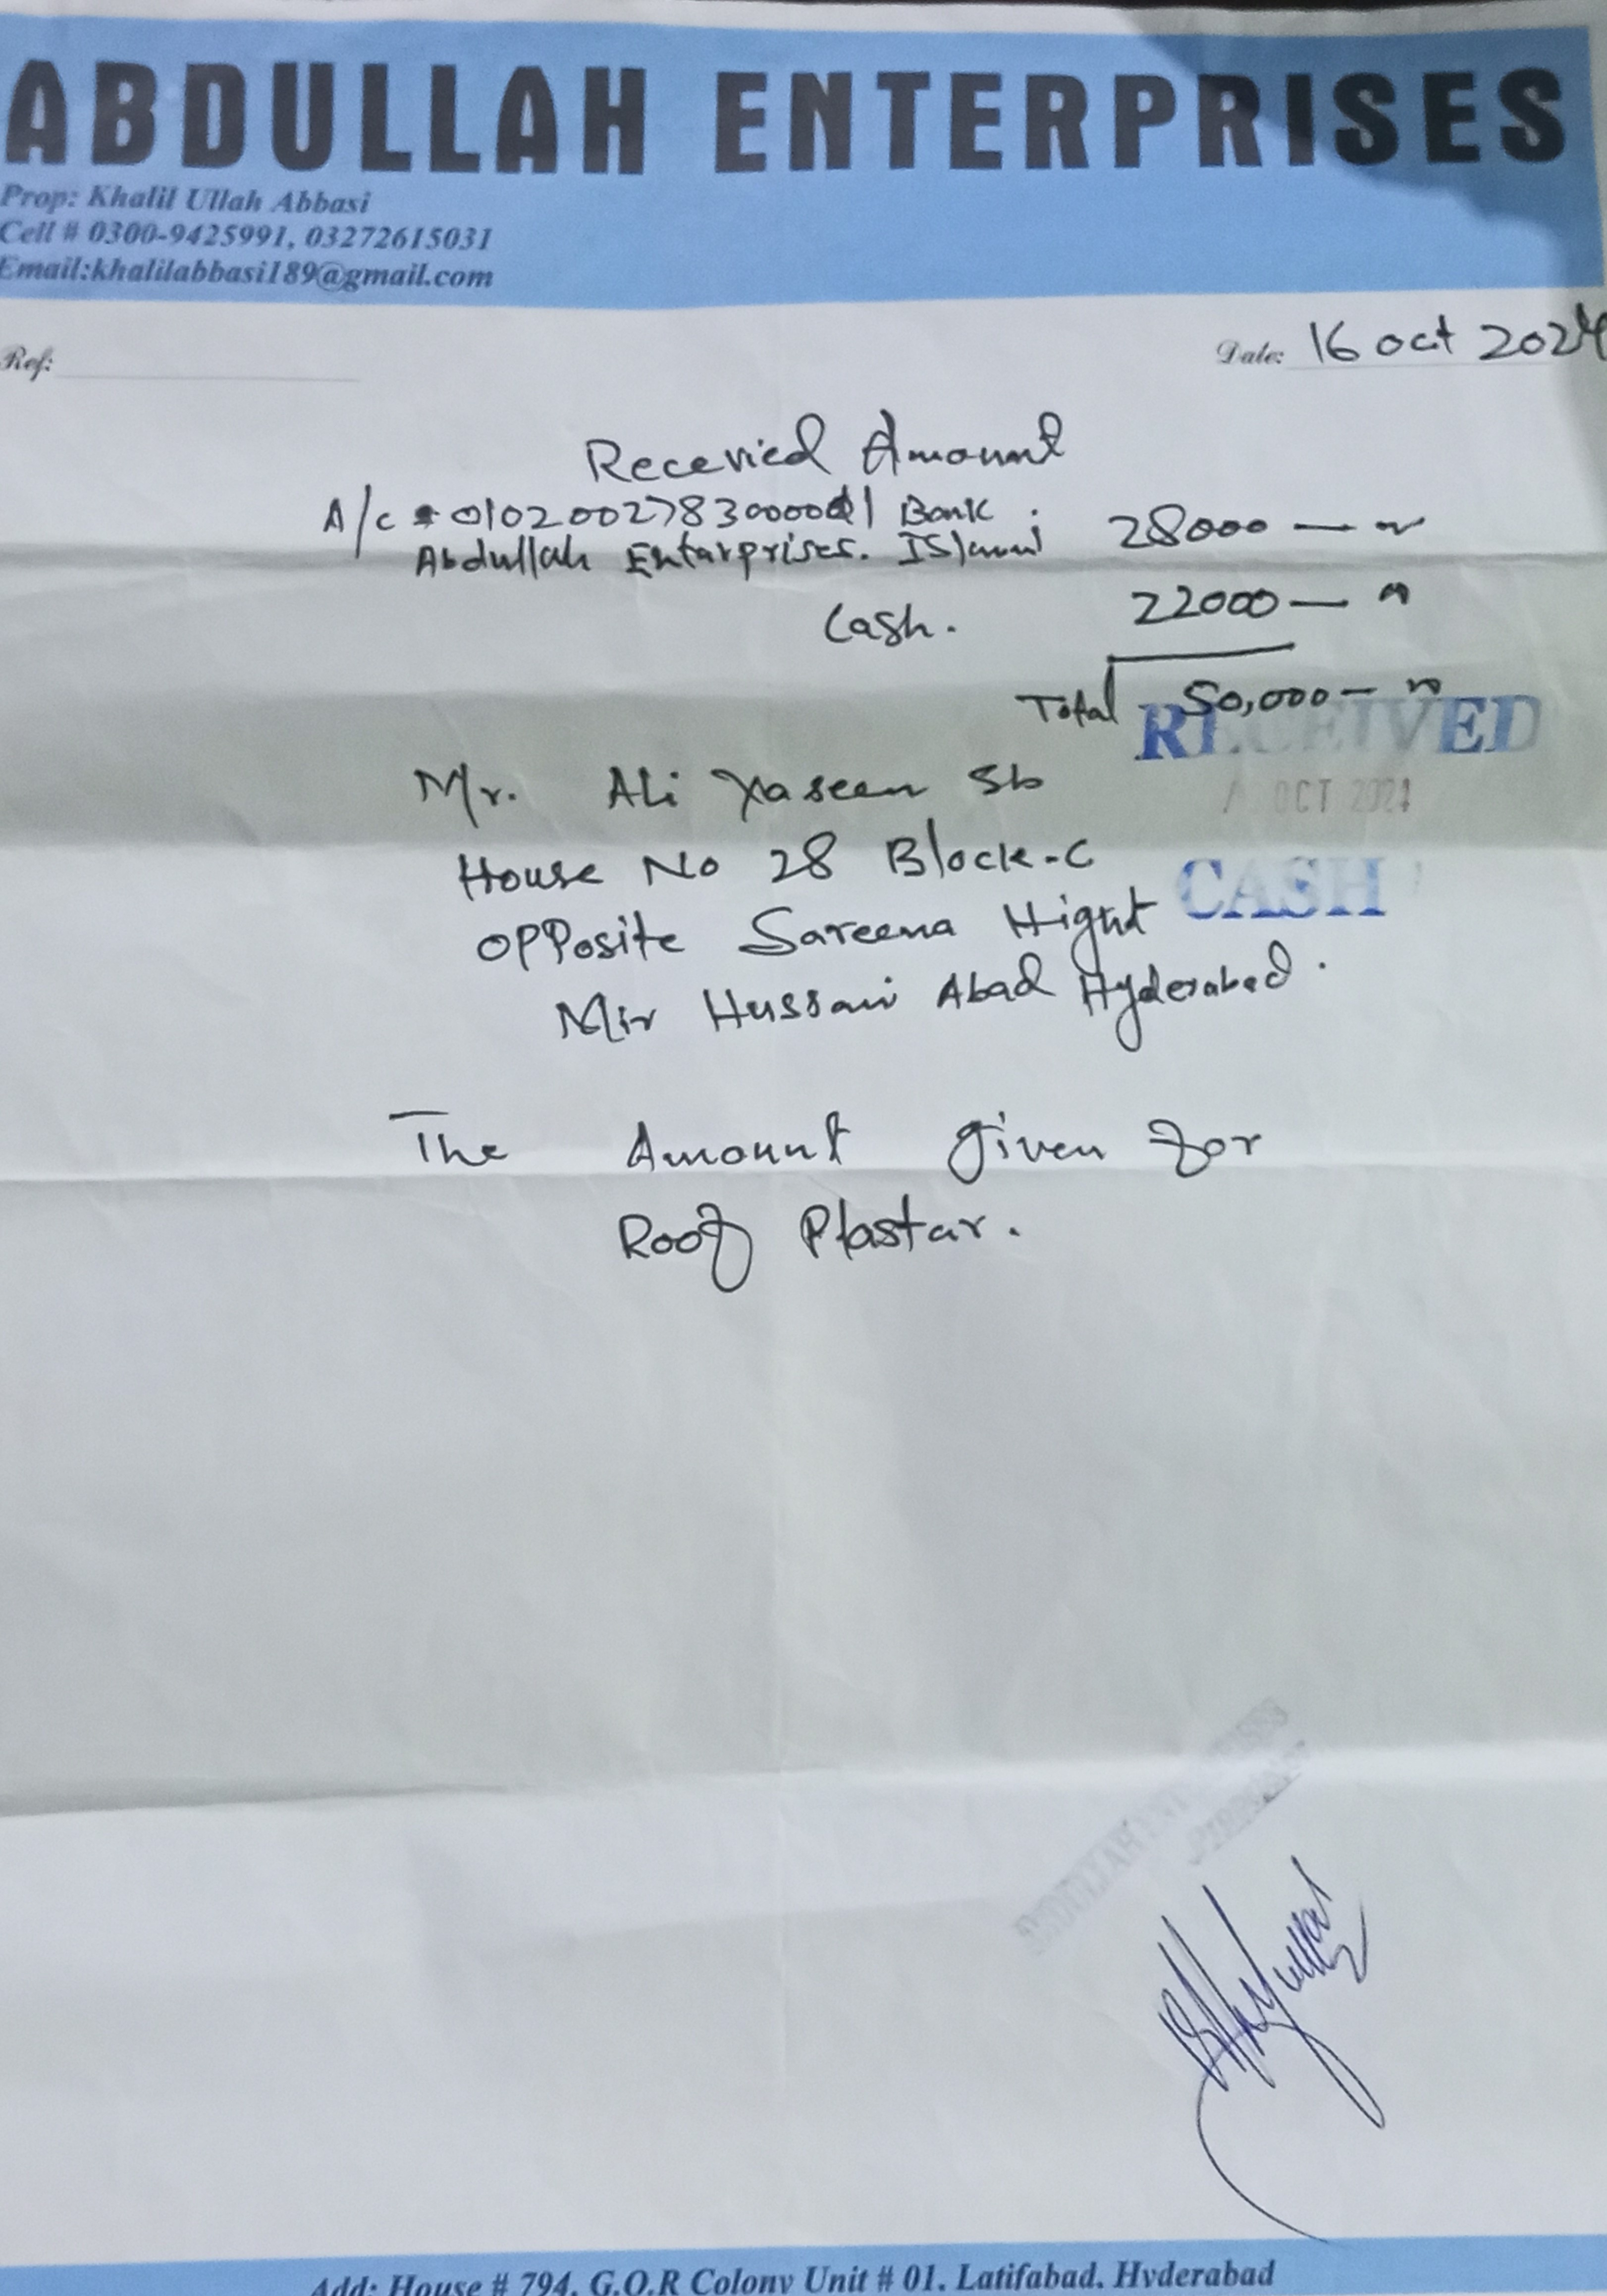 ABDULLAH ENTERPRISES
Prop: Khalil Ullah Abbasi
Cell # 0300-9425991, 03272615031
Email:khalilabbasi189@gmail.com
Ref:
Date: 16 oct 2024
Recevied Amount
A/c Bank
Abdullah Entarprises. ISlami 28000 —
Cash. 22000 —
Total 50,000 —
RECEIVED
OCT 2024
Mr. Ali Yaseen Sb
House No 28 Block-C
CASH
OPPosite Sareena Hight
Mir Hussain Abad Hyderabad.
The Amount given for
Roof Plastar.
Add: House # 794, G.O.R Colony Unit # 01, Latifabad, Hyderabad